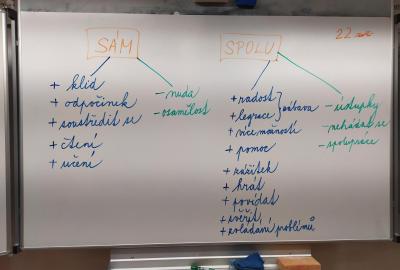 SÁM
+ klid
+ odpočinek
+ soustředit se
+ čtení
+ učení
- nuda
- osamělost
SPOLU
+ radost
+ legrace } zábava
+ více možností
+ pomoc
+ zážitek
+ hrát
+ povídat
+ svěřit
+ zvládání problémů
- ústupky
- nehádat se
- spolupráce
22